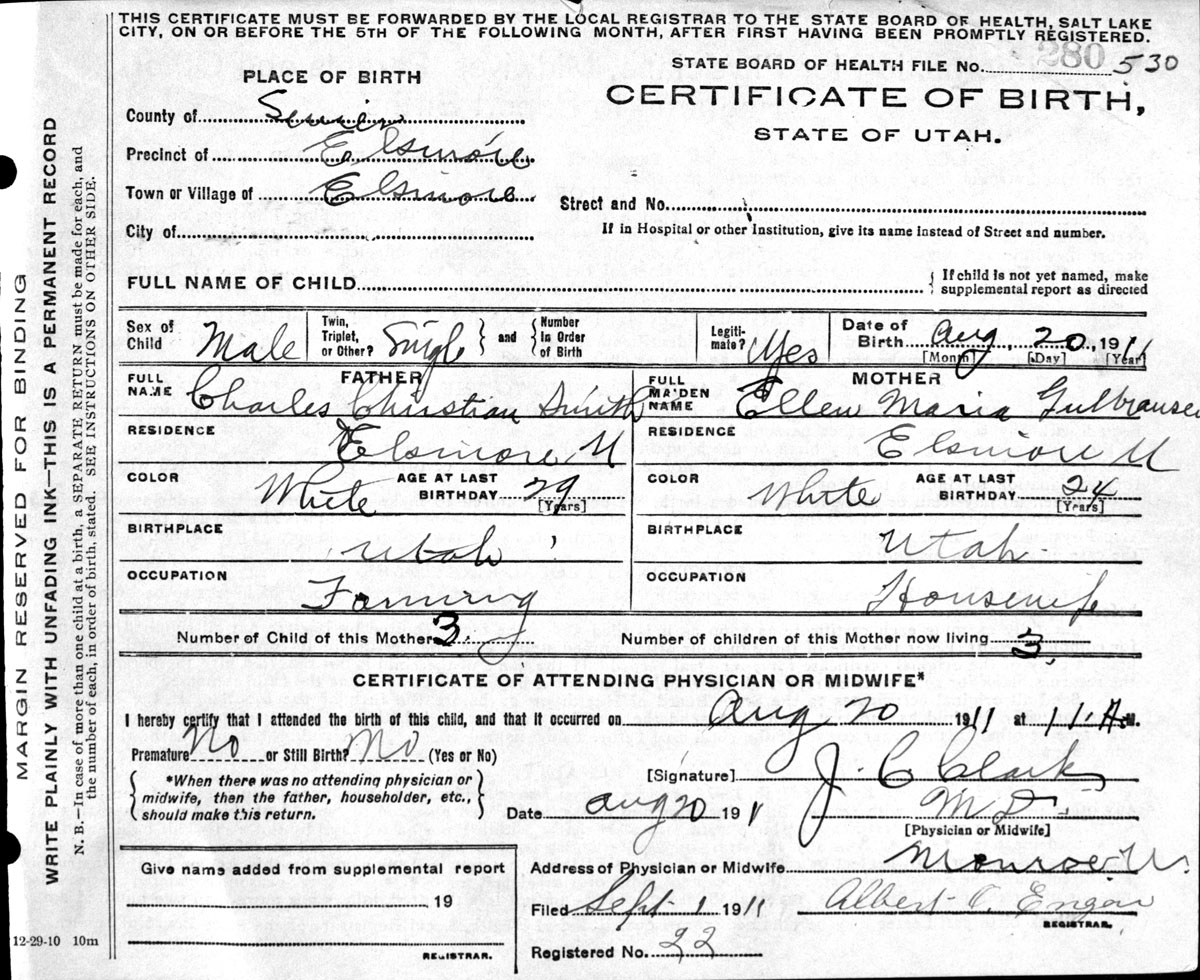 THIS CERTIFICATE MUST BE FORWARDED BY THE LOCAL REGISTRAR TO THE STATE BOARD OF HEALTH, SALT LAKE
CITY, ON OR BEFORE THE 5TH OF THE FOLLOWING MONTH, AFTER FIRST HAVING BEEN PROMPTLY REGISTERED.
280
STATE BOARD OF HEALTH FILE No. 530
PLACE OF BIRTH
CERTIFICATE OF BIRTH,
STATE OF UTAH.
County of Sevier
Precinct of Elsinore
Town or Village of Elsinore
Street and No.
City of
If in Hospital or other Institution, give its name instead of Street and number.
FULL NAME OF CHILD
If child is not yet named, make
supplemental report as directed
Sex of Child Male
Twin, Triplet, or Other? Single
and
Number In Order of Birth
Legiti-mate? Yes
Date of Birth Aug 20, 1911
[Month] [Day] [Year]
FATHER
FULL NAME Charles Christian Smith
MOTHER
FULL MAIDEN NAME Ellen Maria Gulbransen
RESIDENCE Elsinore U
RESIDENCE Elsinore U
COLOR White AGE AT LAST BIRTHDAY 29 [Years]
COLOR White AGE AT LAST BIRTHDAY 24 [Years]
BIRTHPLACE Utah
BIRTHPLACE Utah
OCCUPATION Farming
OCCUPATION Housewife
Number of Child of this Mother 3. Number of children of this Mother now living 3.
CERTIFICATE OF ATTENDING PHYSICIAN OR MIDWIFE*
I hereby certify that I attended the birth of this child, and that it occurred on Aug 20 1911 at 11 A.M.
Premature No or Still Birth? No (Yes or No)
*When there was no attending physician or
midwife, then the father, householder, etc.,
should make this return.
[Signature] J. C Clark
Date Aug 20 1911 M D
[Physician or Midwife]
Give name added from supplemental report
19
REGISTRAR.
Address of Physician or Midwife Monroe U.
Filed Sept 1 1911 Albert O.
REGISTRAR.
Registered No. 22
12-29-10 10m
MARGIN RESERVED FOR BINDING
WRITE PLAINLY WITH UNFADING INK—THIS IS A PERMANENT RECORD
N. B.—In case of more than one child at a birth, a SEPARATE RETURN must be made for each, and
the number of each, in order of birth, stated. SEE INSTRUCTIONS ON OTHER SIDE.